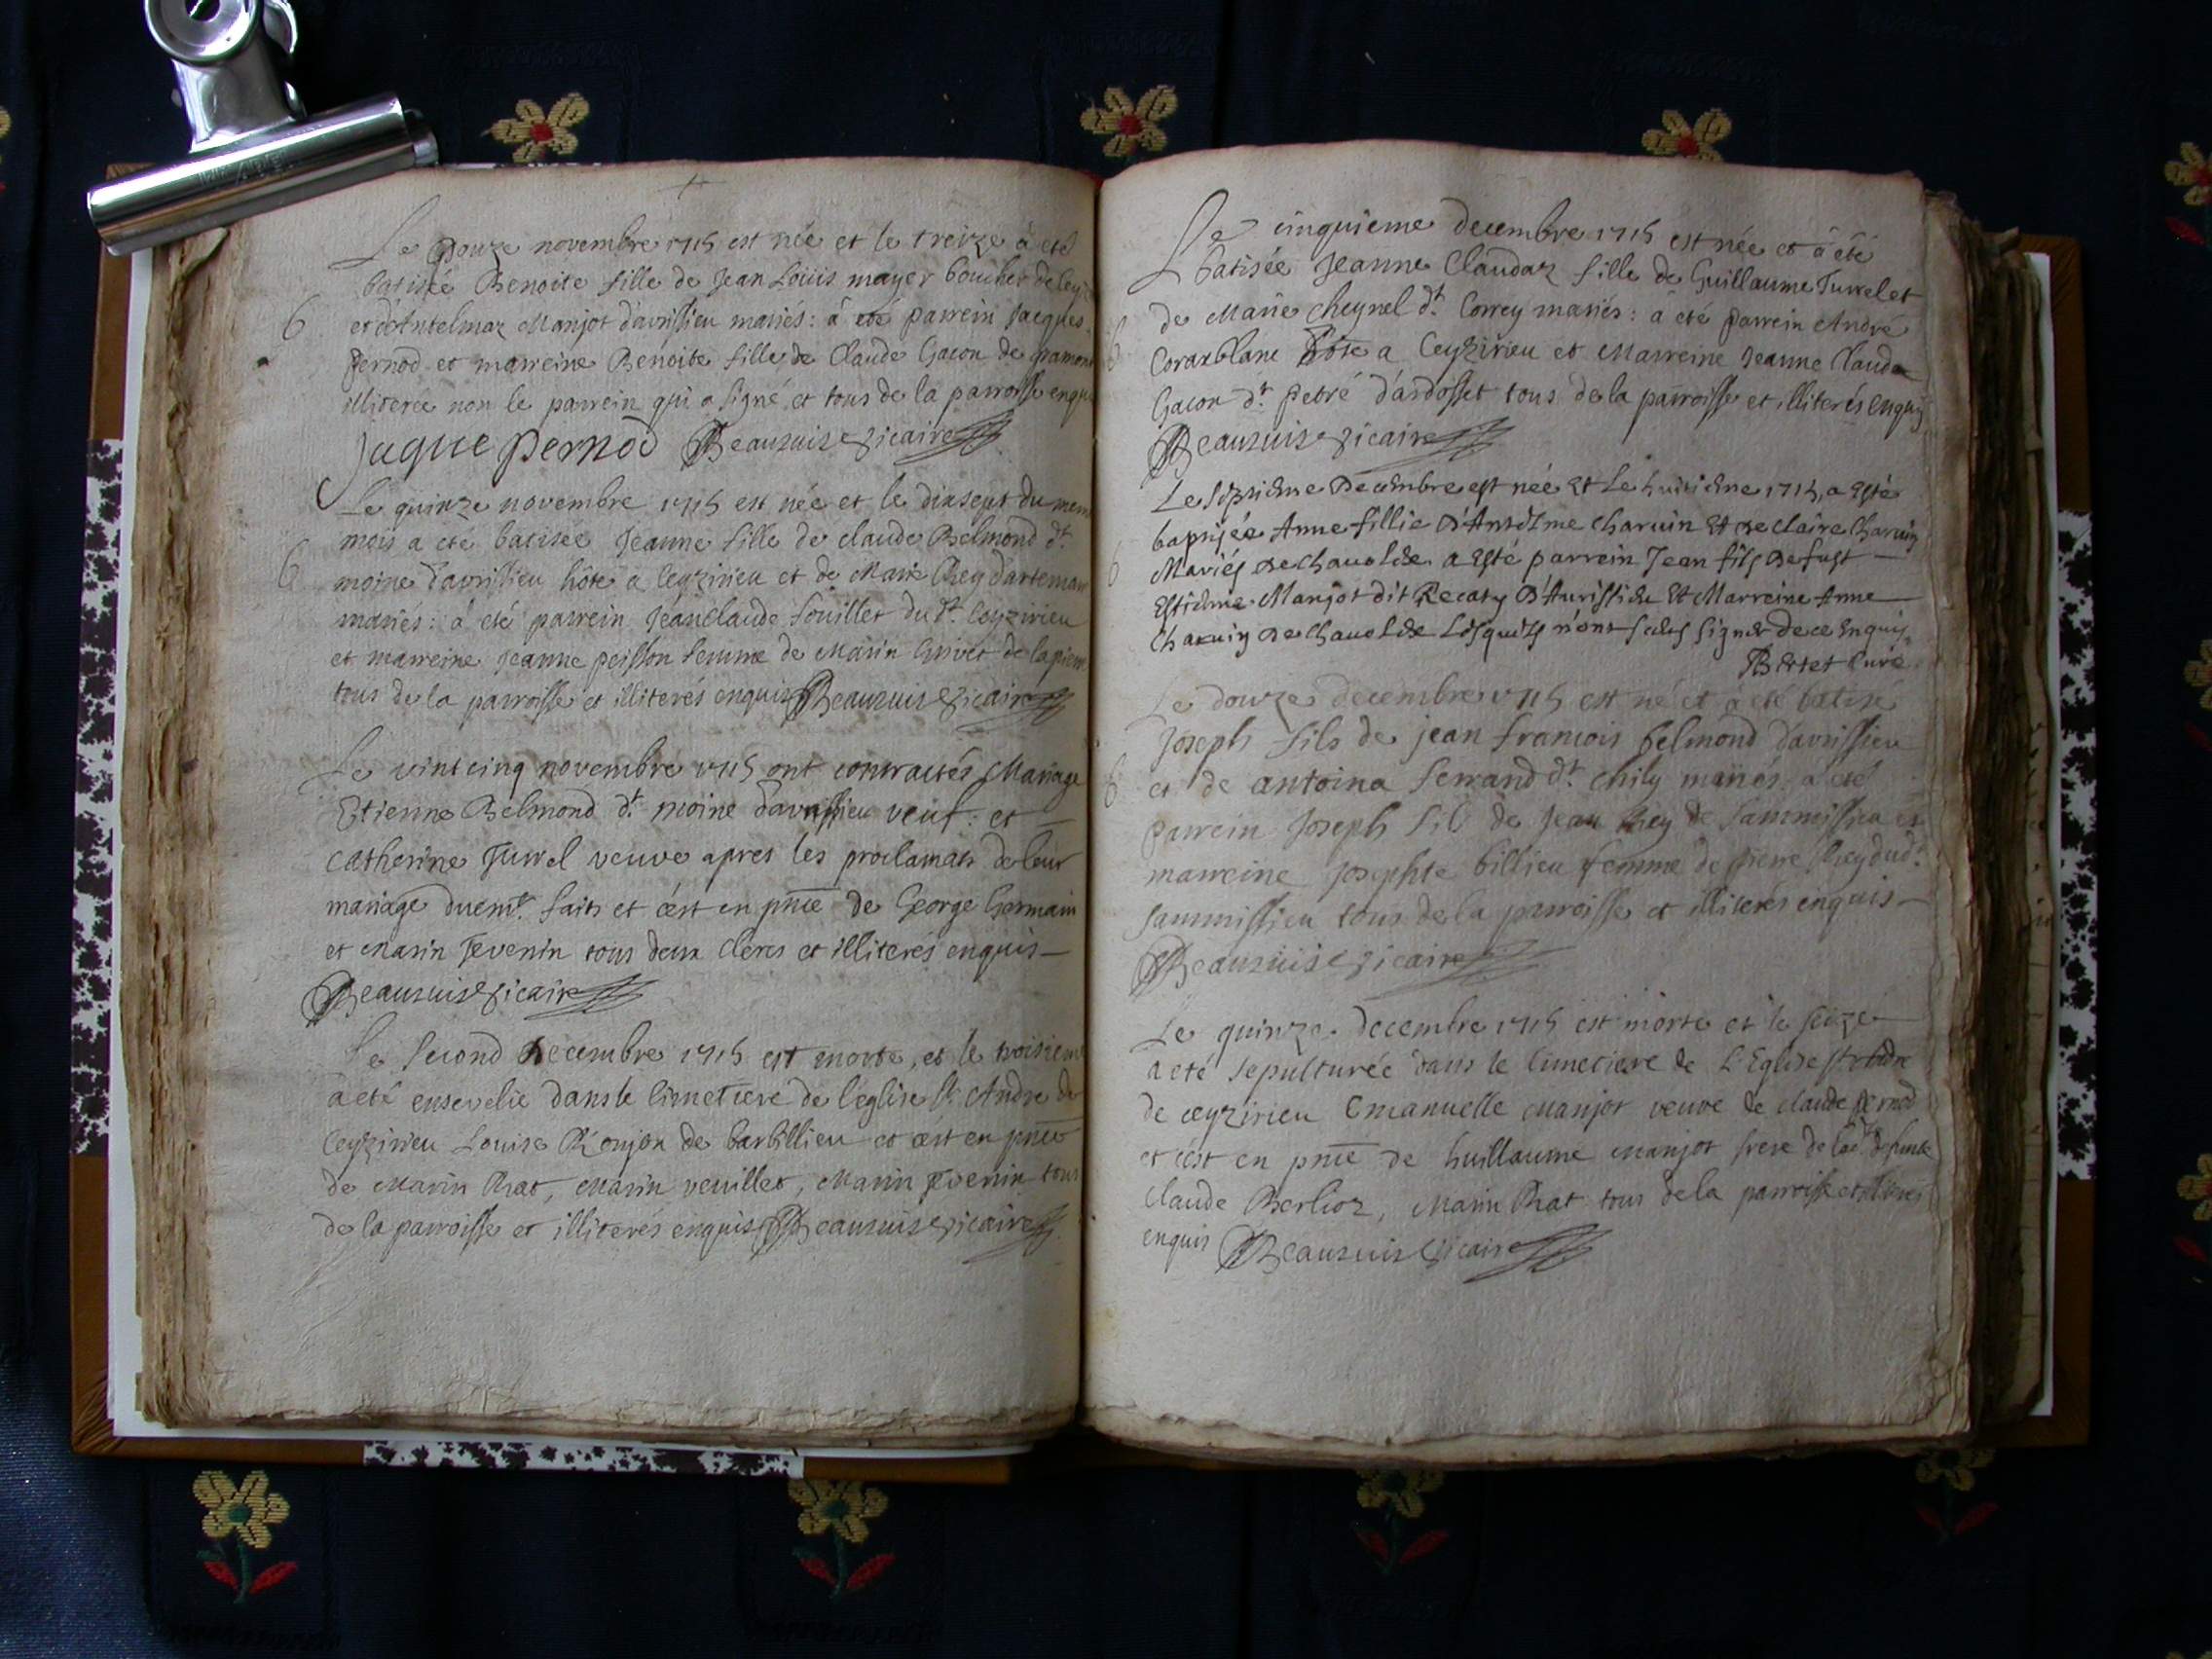 Le Douze novembre 1715 est née et le treize à eté
batisée Benoite fille de Jean Loüis mayer boucher de
et d'Antelmaz Manjot d'avrissieu mariés: à eté parrein Jacques
pernod et marreine Benoite fille de Claude Gacon de
illiterée non le parrein qui a signé et tous de la parroisse
Jaque pernod Beauzuis Vicaire
Le quinze novembre 1715 est née et le dixsept du
mois a eté batisée Jeanne fille de claude Belmond dt.
moine d'avrissieu hôte a Ceyzirieu et de Marie Rey
mariés: à eté parrein Jeanclaude fouillet du dt. Ceyzirieu
et marreine Jeanne peisson femme de Marin Guivet de
tous de la parroisse et illiterés enquis Beauzuis Vicaire
Le vintcinq novembre 1715 ont contractés Mariage
Etienne Belmond dt. moine d'avrissieu veuf: et
Catherine Jurrel veuve apres les proclamats de leur
mariage duemt. faits et c'est en pnce de George Germain
et Marin Tevenin tous deux clercs et illiterés enquis
Beauzuis Vicaire
Le second Decembre 1715 est morte, et le troisieme
à eté ensevelie dans le cimetiere de l'eglise st. Andre de
Ceyzirieu Louise Roujon de barbillieu et c'est en pnce
de Marin Rat, Marin veuillet, Marin Tevenin tous
de la parroisse et illiterés enquis Beauzuis Vicaire
Le cinquieme decembre 1715 est née et à été
batisée Jeanne Claudaz fille de Guillaume Turrel et
de Marie cheynel dt. Correy mariés: a eté parrein André
Corazblanc hôte a Ceyzirieu et Marreine Jeanne Clauda
Gacon dt. petré d'ardosset tous de la parroisse et illiterés enquis
Beauzuis Vicaire
Le septieme Decembre est née Et Le huitieme 1715, a Esté
baptisée Anne fillie d'Antelme Charvin Et de claire Charvin
Mariés de chavolde a Esté parrein Jean fils de fust
Estienne Manjot dit Recaty d'Avrissieu Et Marreine Anne
Charvin de Chavolde Lesquels n'ont sceus signer de ce Enquis
Bertet Curé
Le douze decembre 1715 est né et à eté batisé
Joseph fils de jean francois belmond d'avrissieu
et de antoina ferrand dt. chily mariés a eté
parrein Joseph fils de Jean Rey de sammissieu et
marreine Josephte billieu femme de pierre Rey dudt.
sammissieu tous de la parroisse et illiterés enquis
Beauzuis Vicaire
Le quinze decembre 1715 est morte et le seize
a eté sepulturée dans le cimetiere de L'Eglise st andre
de ceyzirieu Emanuelle Manjot veuve de claude pernod
et c'est en pnce de huillaume Manjot frere de defunte
Claude Berlioz, Marin Rat tous de la parroisse et
enquis Beauzuis Vicaire